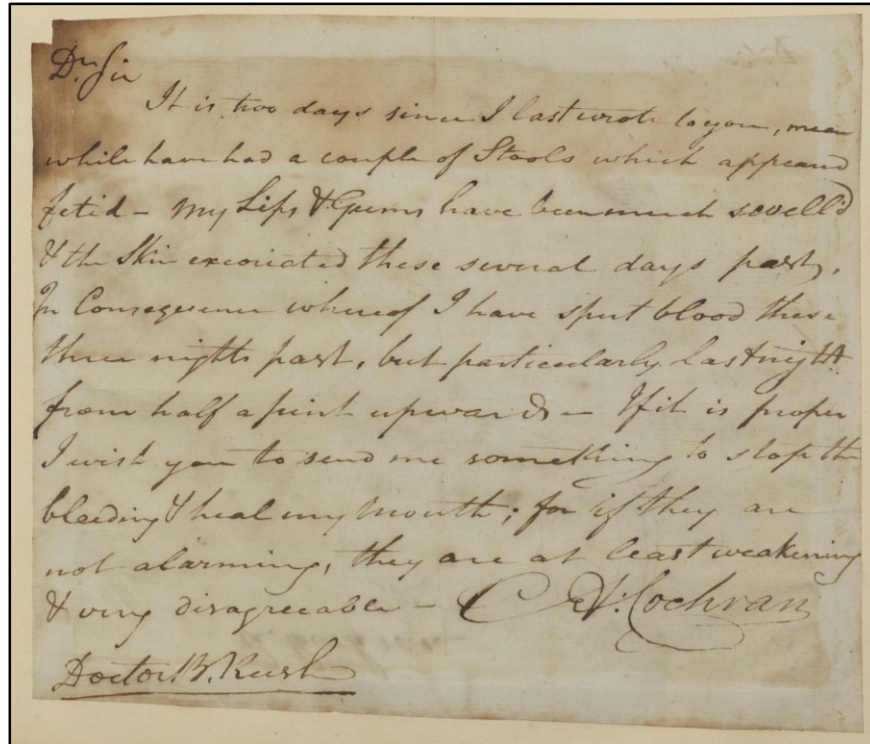 Dr. Sir
It is two days since I last wrote to you, mean
while have had a couple of Stools which appeared
fetid – my Lips & Gums have been much swell'd
& the Skin excoriated these several days past,
In Consequence whereof I have spit blood these
three nights past, but particularly last night
from half a pint upwards – If it is proper
I wish you to send me something to stop the
bleeding & heal my Mouth; for if they are
not alarming, they are at least weakening
& very disagreeable – Cochran
Doctor B. Rush